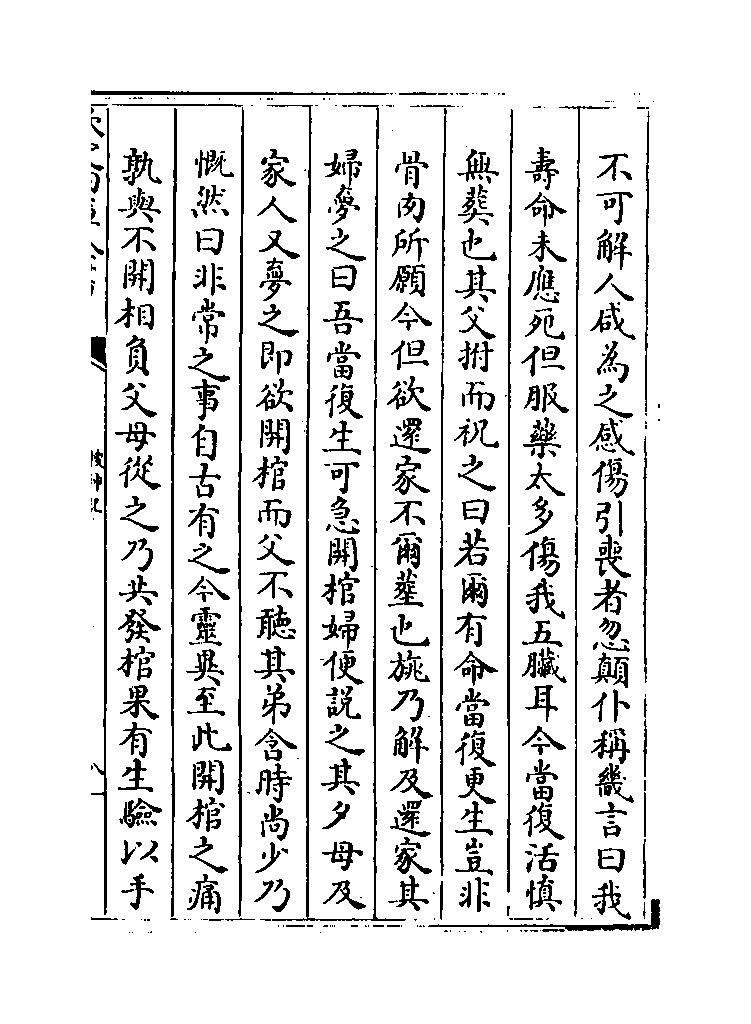 不可解人咸為之感傷引喪者忽顛仆稱畿言曰我
壽命未應死但服藥太多傷我五臟耳今當復活慎
無葬也其父拊而祝之曰若爾有命當復更生豈非
骨肉所願今但欲還家不爾葬也旐乃解及還家其
婦夢之曰吾當復生可急開棺婦便說之其夕母及
家人又夢之即欲開棺而父不聽其弟含時尚少乃
慨然曰非常之事自古有之今靈異至此開棺之痛
孰與不開相負父母從之乃共發棺果有生驗以手
搜神記